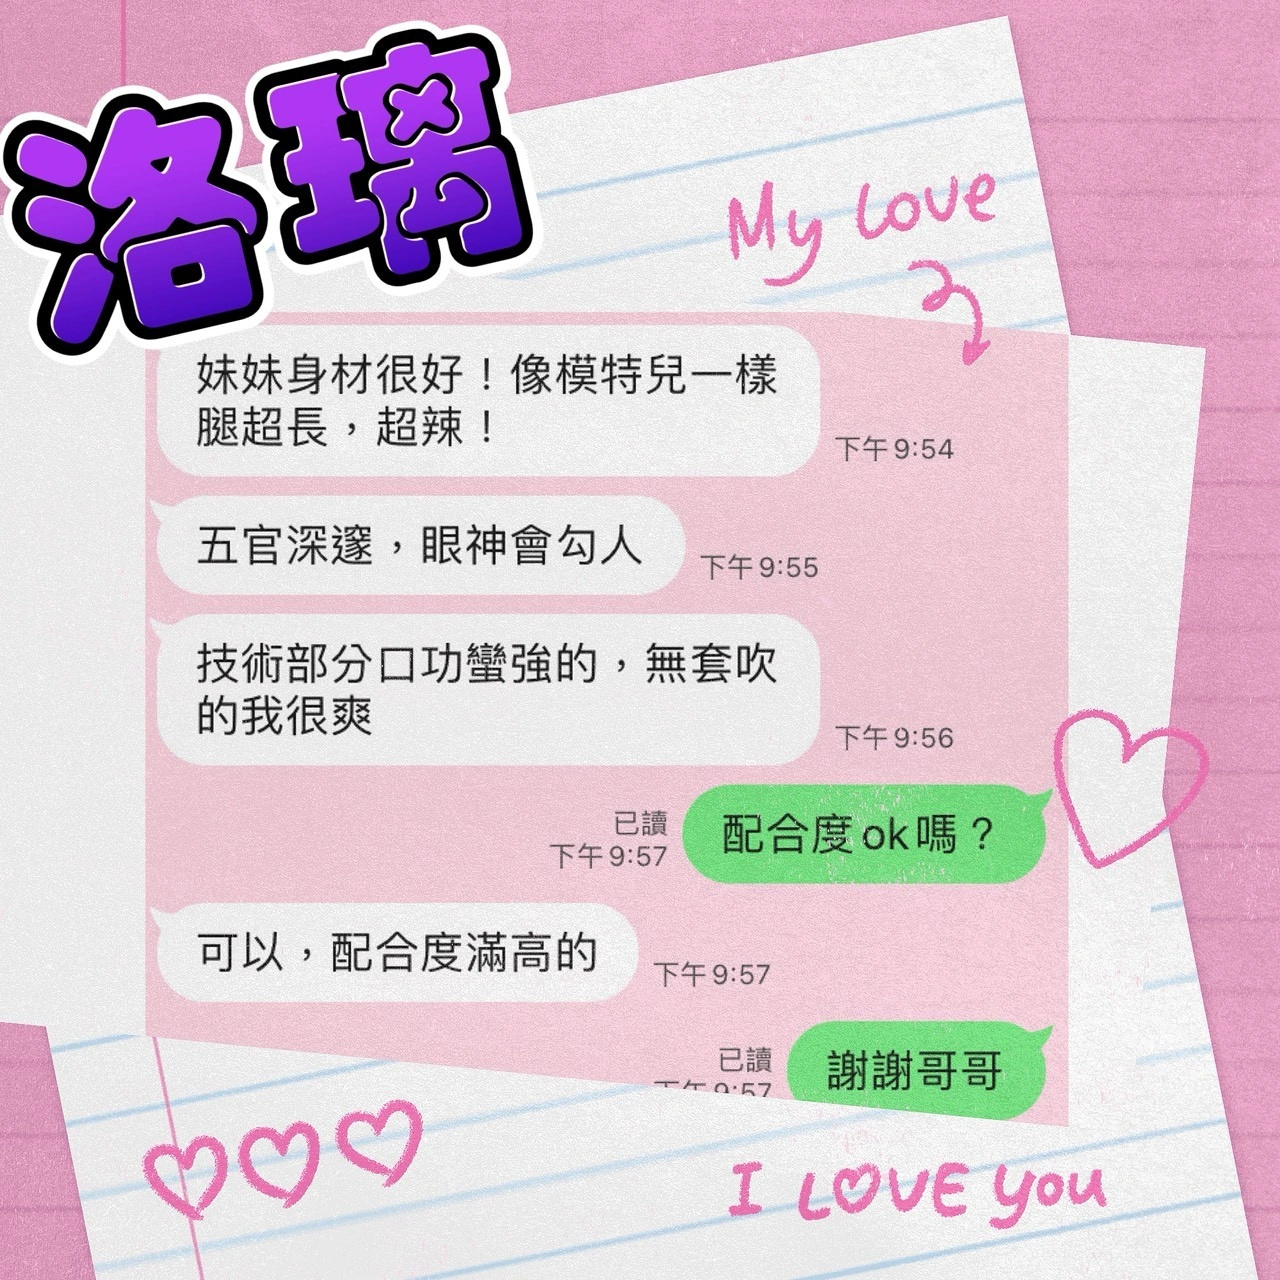 洛璃
My love
妹妹身材很好！像模特兒一樣
腿超長，超辣！
下午 9:54
五官深邃，眼神會勾人
下午 9:55
技術部分口功蠻強的，無套吹
的我很爽
下午 9:56
已讀
下午 9:57
配合度ok嗎？
可以，配合度滿高的
下午 9:57
已讀
下午 9:57
謝謝哥哥
I LOVE you